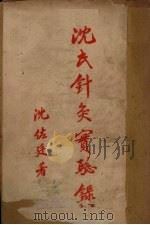 沈氏針灸實驗錄
沈佐廷著